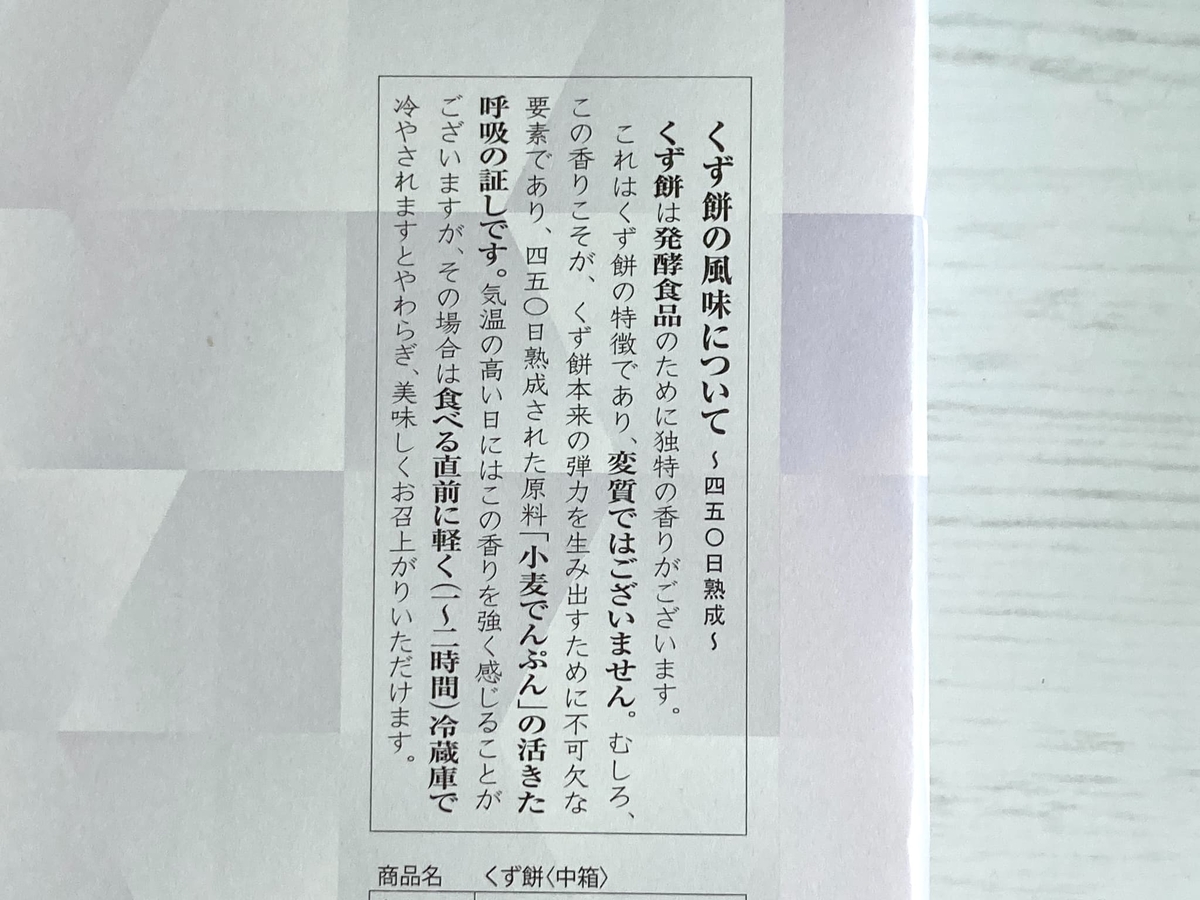 くず餅の風味について 〜四五〇日熟成〜
くず餅は発酵食品のために独特の香りがございます。
これはくず餅の特徴であり、変質ではございません。むしろ、
この香りこそが、くず餅本来の弾力を生み出すために不可欠な
要素であり、四五〇日熟成された原料「小麦でんぷん」の活きた
呼吸の証しです。気温の高い日にはこの香りを強く感じることが
ございますが、その場合は食べる直前に軽く(一〜二時間)冷蔵庫で
冷やされますとやわらぎ、美味しくお召上がりいただけます。
商品名 くず餅〈中箱〉